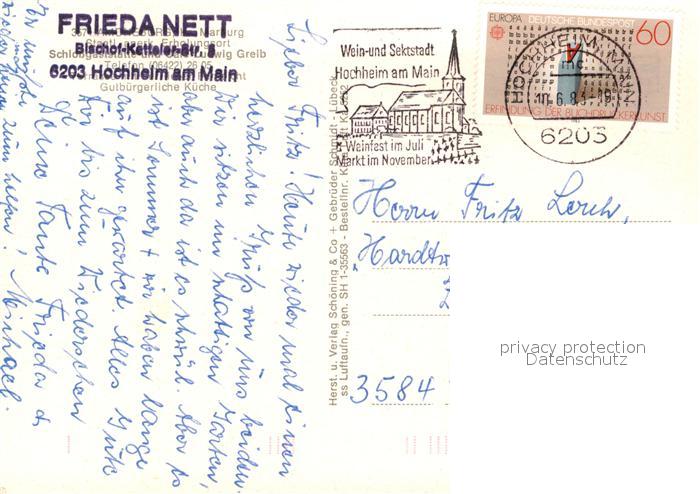 FRIEDA NETT
Bischof-Ketteler-Str. 8
6203 Hochheim am Main
Telefon (06422) 26 05
Gutbürgerliche Küche
Wein-und Sektstadt
Hochheim am Main
Weinfest im Juli
Markt im November
EUROPA DEUTSCHE BUNDESPOST 60
ERFINDUNG DER BUCHDRUCKERKUNST
HOCHHEIM AM MAIN
6203
Herst. u. Verlag Schöning & Co + Gebrüder Schmidt - Lübeck
ss Luftaufn., gen. SH 1-35563 - Bestellnr.
Lieber Fritz! Heute wieder mal einen
herzlichen Gruß von uns beiden.
Wir sitzen im schattigen Garten,
aber auch da ist es schwül. Aber es
ist Sommer + wir haben lange
auf ihn gewartet. Alles Gute
für bis zum Wiedersehen
Deine Tante Frieda &
Michael.
Herrn Fritz Lerch,
"Hardtw
3584
privacy protection
Datenschutz